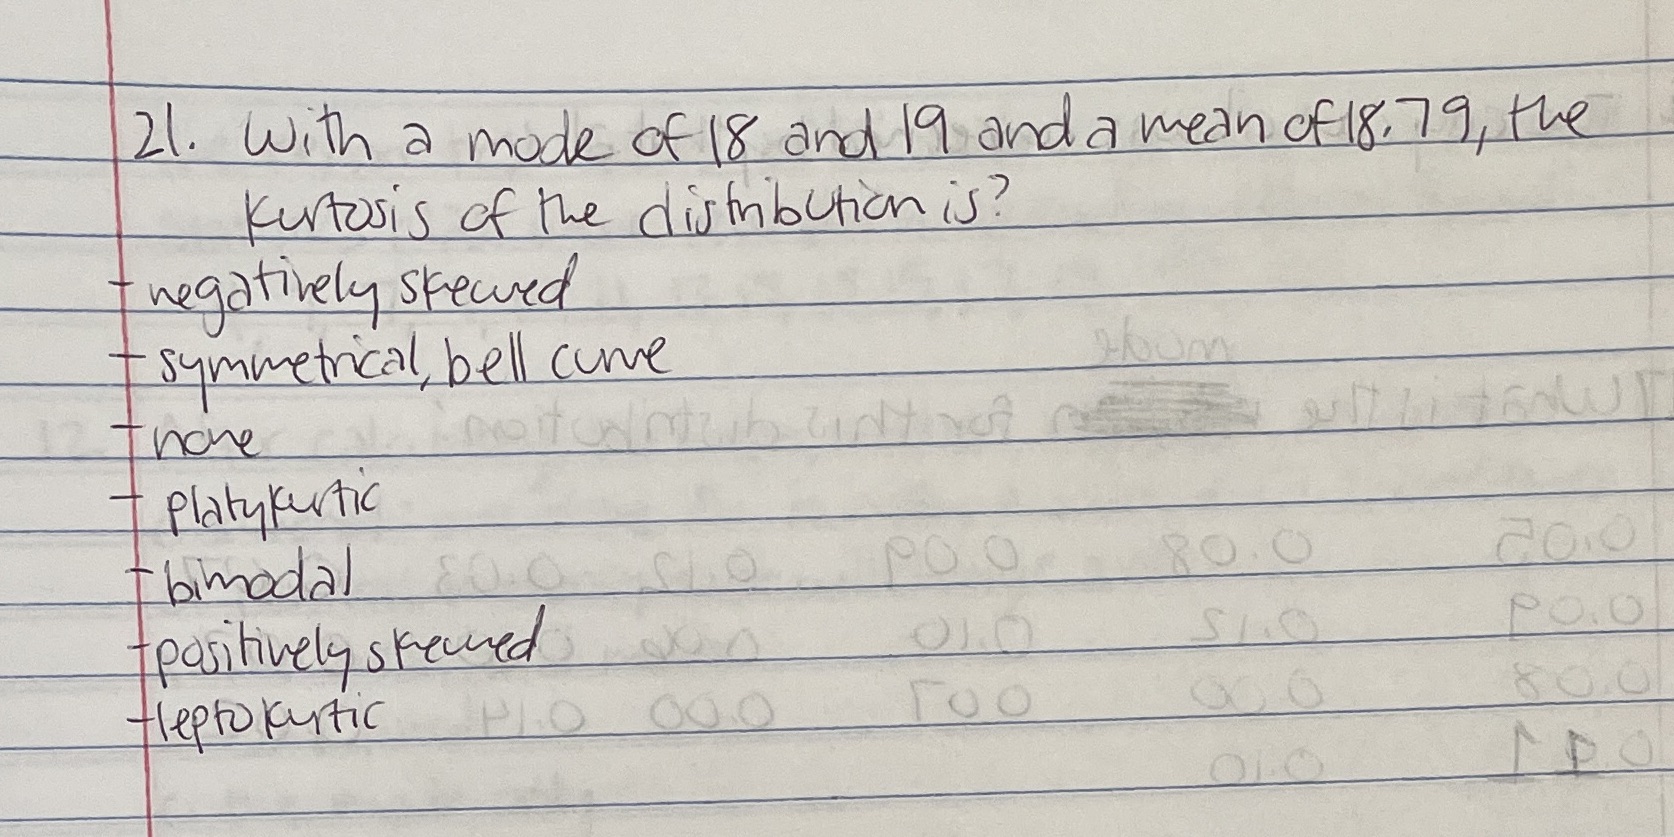 21. With a mode of 18 and 19 and a mean of 18.79, the
kurtosis of the distribution is?
- negatively skewed
- symmetrical, bell curve
- none
- platykurtic
- bimodal
- positively skewed
- leptokurtic